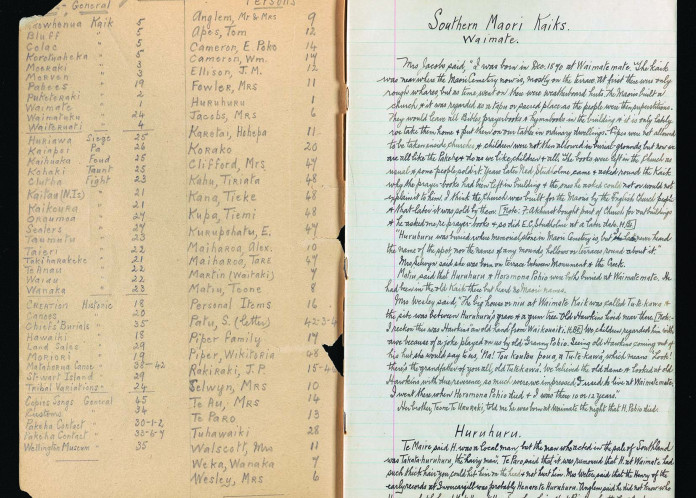 General
Kaik 5
Bluff " 5
Colac " 5
Korotuaheka " 5
Moeraki " 3
Morven " 3
Pahees " 19
Puketeraki " 2
Waimate " 1
Waimatuku " 24
Waiteruati " 4
Huriawa Siege 25
Kaiapoi Pa 26
Maihuaka Feud 25
Kohaki Taunt 25
Clutha Fight 23
Kaitaa (N.Is.) " 21
Kaikoura " 21
Onaumea " 24
Sealers " 24
Taumutu " 23
Taieri " 23
Takitimu " 21
Te Anau " 22
Waiau " 22
Wanaka " 23
Creation Historic 18
Canoes " 20
Chiefs' Burials " 35
Hawaiki " 18
Land Sales " 29
Moriori " 19
Stewart Island " 29
Tribal Variations " 24
General 45
Customs " 34
Pakeha Contact " 30-1-2
Pakeha Contact "
Wellington Museum " 35
Persons
Anglem, Mr & Mrs 9
Apes, Tom 12
Cameron, E. Poko 14
Cameron, Wm. 14
Ellison, J.M. 12
Fowler, Mrs 11
Huruhuru 1
Jacobs, Mrs 6
Karetai, Hehepa 11
Korako 20
Clifford, Mrs 47
Kahu, Tikiata 48
Kana, Tieke 48
Kupa, Tiemi 48
Kurupohatu, E. 47
Maiharoa, Alex. 10
Maiharoa, Tare 47
Mantin (Wairaki) 7
Matiu, Toone 8
Personal Items 16
Patu, S. (Letter) 42-3-4
Piper Family 17
Piper, Wikitoria 48
Rakiraki, J.P. 15-4
Selwyn, Mrs 10
Te Au, Mrs 14
Te Paro 13
Tuhawaiki 28
Walscott, Mrs 11
Weka, Wanaka 7
Wesley, Mrs 6
Southern Maori Kaiks.
Waimate.
Mrs Jacobs said, "I was born in Dec. 1890 at Waimatemate. The kaik
was near where the Maori Cemetery now is, mostly on the terrace. At first there were only
rough whares, but as time went on there were weatherboard huts. The Maoris built a
church & it was regarded as a tapu or sacred place as the people were then superstitious.
They would leave all Bibles, prayerbooks & hymnbooks in the building & it is only lately
we take them home & put them on our table in ordinary dwellings. Pipes were not allowed
to be taken inside churches & children were not then allowed in burial-grounds, but now we
are all like the Pakeha & do as we like, children & all. The books were left in the Church as
usual & some people sold it. Years later Ned Studholme came & asked round the Kaik
why the prayer-books had been left in building & the ones he asked could not or would not
explain it to him. I think the Church was built for the Maoris by the English Church people
& that later it was sold by them [Note: F. Akhurst bought part of Church for outbuildings
& he asked me re prayer-books & so did E.C. Studholme at a later date. H.B.]
"Huruhuru was buried where memorial stone in Maori Cemetery is, but I never heard
the name of the spot nor the names of any mounds, hollows or terraces round about it."
said she was born on terrace between Monument & the Creek.
Matiu, said that Huruhuru & Horomona Pohio were both buried at Waimatemate. He
had been in the old Kaik there but heard no Maori names.
Mrs Wesley said, "The big house or niu at Waimate Kaik was called Tutekawa &
the site was between Huruhuru's grave & a gum tree. Old Hawkins lived near there. [Note:
I reckon this was Hawkins an old hand from Waikouaiti, H.B.] We children regarded him with
awe because of a joke played on us by old Granny Pohio. Seeing old Hawkins coming out of
his hut she would say to us, 'Na! Tou koutou poua, a Tutekawa' which means 'Look!
there's the grandfather of you all, old Tutekawa.' We believed the old dame & looked at old
Hawkins with due reverence, so much were we impressed. I used to live at Waimatemate.
I went there when Horomona Pohio died & I was then 10 or 12 years."
Her brother, Tom Te Uaraki, told me he was born at Waimate the night that H. Pohio died.
Huruhuru.
Te Maire said H. was a local man, but the man who acted in the pale of Southland
was Takatahuruhuru, the hairy man. Te Paro said that it was rumoured that H. at Waimate had
such thick hair you could hit him on the head & not hurt him. Mrs Yates said that the Henry of the
early records at Invercargill was probably Henare te Huruhuru. Anglem said he did not know who